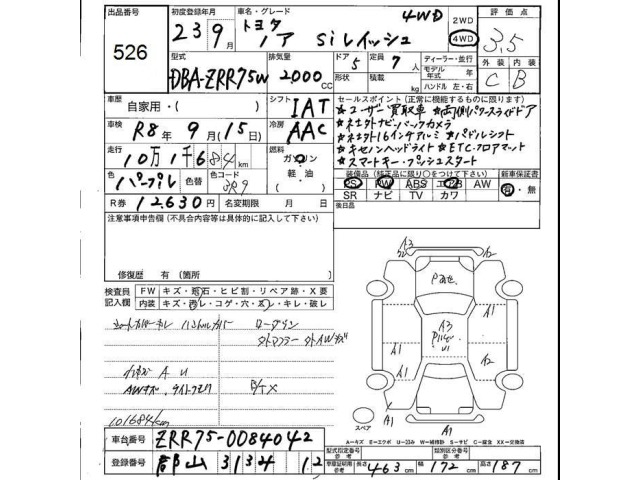 出品番号 初度登録年月 車名・グレード 評価点
526 23年9月 トヨタ ノア Siレイッシュ 4WD 2WD 4WD 3,5
型式 排気量 ドア 定員 ディーラー・並行 外装 内装
DBA-ZRR75W 2000 CC 5 7人 モデル年式 年 C B
形状 積載 kg ハンドル 左・右
車歴 自家用・( ) シフト IAT セールスポイント(正常に機能するものに限ります)
★ユーザー買取車 ★両側パワースライドドア
車検 R8年9月(15)日 冷房 AAC ★社外ナビ・バックカメラ
★社外16インチアルミ ★パドルシフト
走行 10万1千684km 燃料 ガソリン 軽油 ★キセノンヘッドライト ★ETC・フロアマット
★スマートキー・プッシュスタート
色 パープル 色替 色コード 3R9 装備品(純正品に限り○をつけて下さい) 新車保証書
PS PW ABS エアB AW 有・無
SR ナビ TV カワ
R券 12630円 名変期限 月 日 後日品
注意事項申告欄(不具合内容等は具体的に記入して下さい)
修復歴 有(箇所 )
検査員記入欄 FW キズ・飛石・ヒビ割・リペア跡・X要
内装 キズ・汚レ・コゲ・穴・ネジ穴・キレ・破レ
A3
A3
A1 A2
A1 A2
A1
A1
AWキズ、ライトクモリ
101684km
スペア
A=キズ E=エクボ U=凹み W=補修跡 S=サビ C=腐食 XX=交換済
車台番号 ZRR75-0084042
登録番号 郡山 313 12
型式指定番号 類別区分番号
車庫証明用参考 長さ 463 cm 幅 172 cm 高さ 187 cm